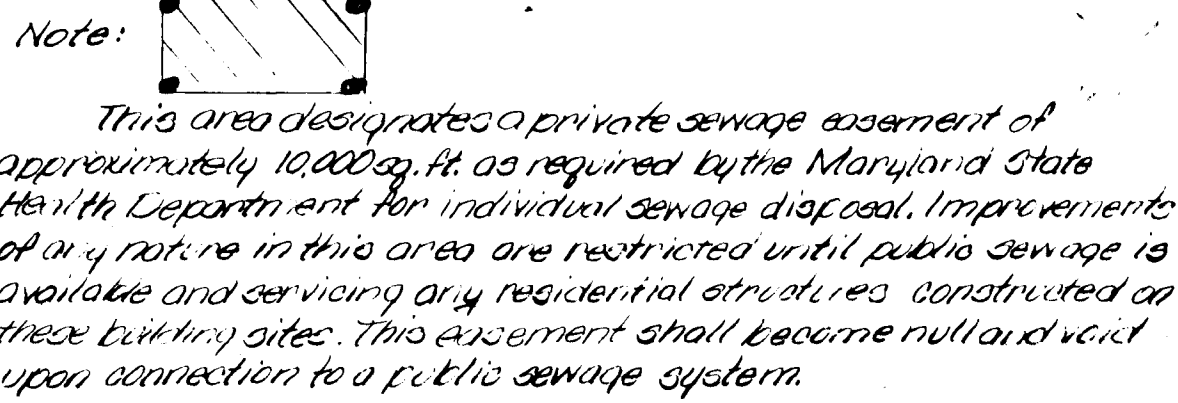 Note:
This area designates a private sewage easement of
approximately 10,000 sq. ft. as required by the Maryland State
Health Department for individual sewage disposal. Improvements
of any nature in this area are restricted until public sewage is
available and servicing any residential structures constructed on
these building sites. This easement shall become null and void
upon connection to a public sewage system.